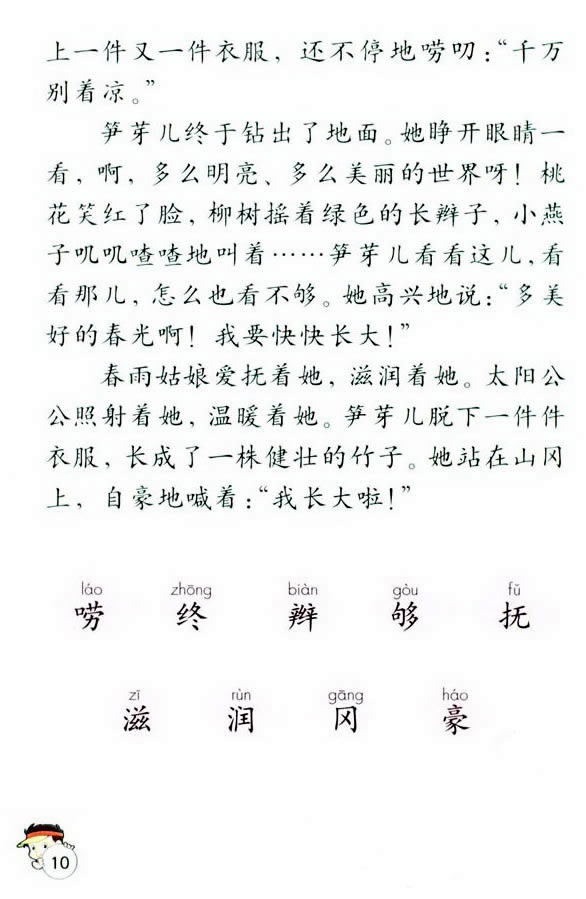 上一件又一件衣服，还不停地唠叨：“千万
别着凉。”
笋芽儿终于钻出了地面。她睁开眼睛一
看，啊，多么明亮、多么美丽的世界呀！桃
花笑红了脸，柳树摇着绿色的长辫子，小燕
子叽叽喳喳地叫着……笋芽儿看看这儿，看
看那儿，怎么也看不够。她高兴地说：“多美
好的春光啊！我要快快长大！”
春雨姑娘爱抚着她，滋润着她。太阳公
公照射着她，温暖着她。笋芽儿脱下一件件
衣服，长成了一株健壮的竹子。她站在山冈
上，自豪地喊着：“我长大啦！”
láo zhōng biàn gòu fǔ
唠 终 辫 够 抚
zī rùn gāng háo
滋 润 冈 豪
10